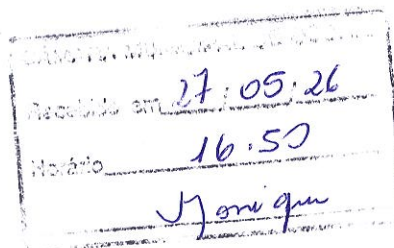 Recebido em 27.05.26
Horário 16.50
Monique